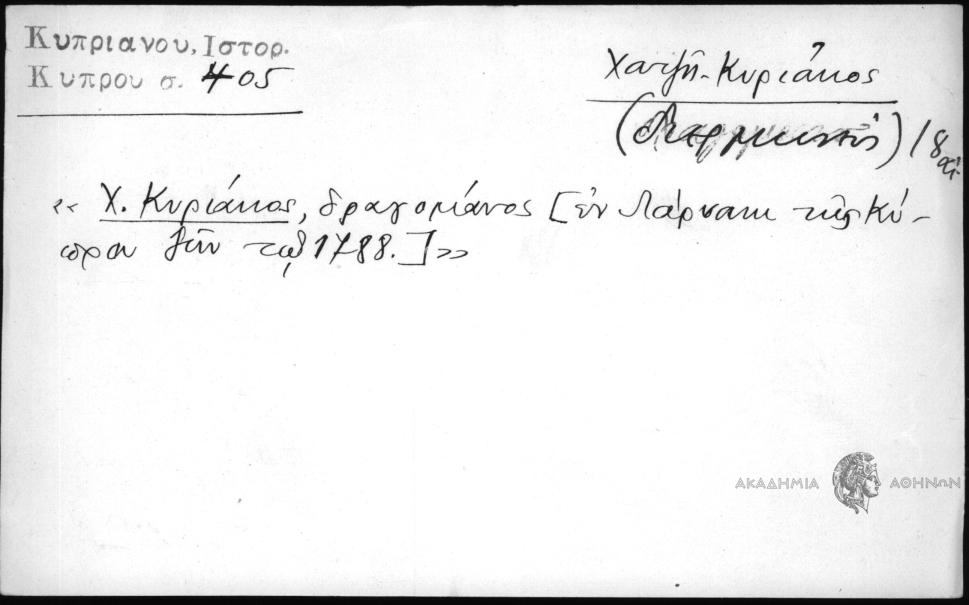 Κυπριανου, Ιστορ.
Κυπρου σ. 405
Χατζῆ-Κυριάκος
(διερμηνεύς) 18 αἰ.
« Χ. Κυριάκος, δραγομάνος [ἐν Λάρνακι τῆς Κύ-
πρου ζῶν τῷ 1788.] »
ΑΚΑΔΗΜΙΑ ΑΘΗΝΩΝ